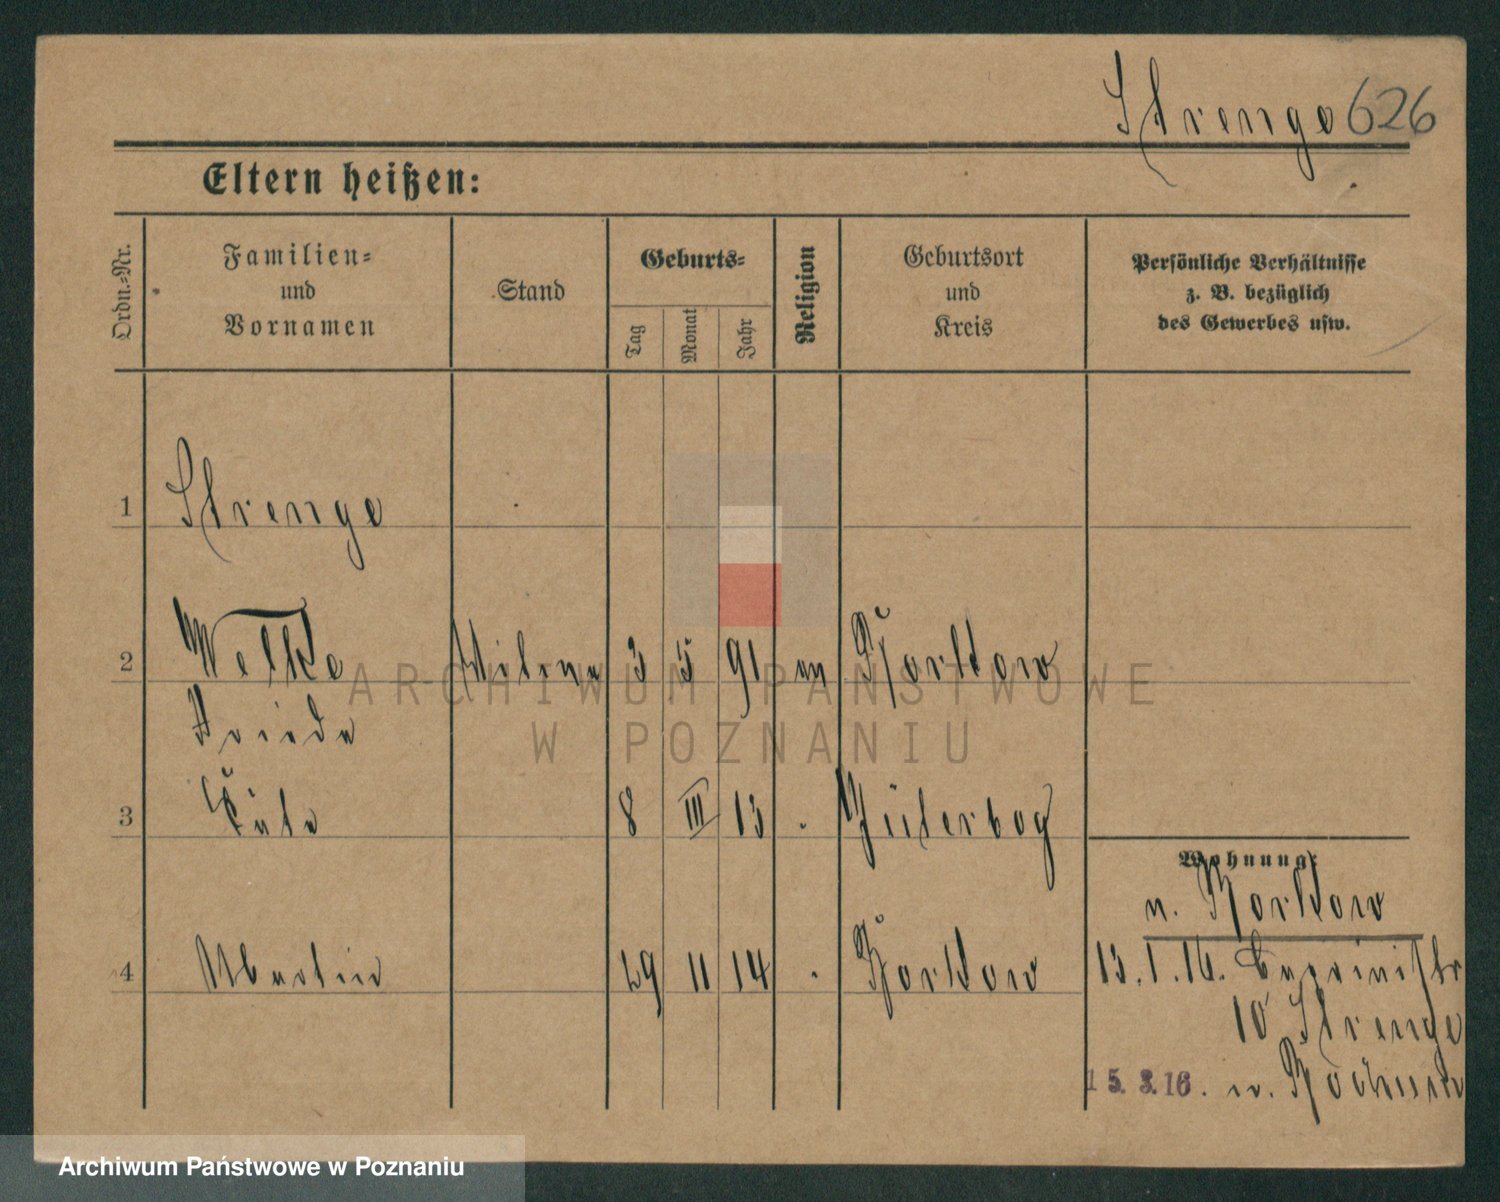 Strenge 626
Eltern heißen:
Ordn.-Nr.
Familien=
und
Vornamen
Stand
Geburts=
Tag
Monat
Jahr
Religion
Geburtsort
und
Kreis
Persönliche Verhältnisse
z. B. bezüglich
des Gewerbes usw.
1 Strenge
2 Welke 3 5 91
Frieda
3 Käte 8 III 13 . Jüterbog
Wohnung:
n.
4 Martin 29 11 14 .
13.1.16.
10 Strenge
15.3.16. n.
ARCHIWUM PAŃSTWOWE
W POZNANIU
Archiwum Państwowe w Poznaniu